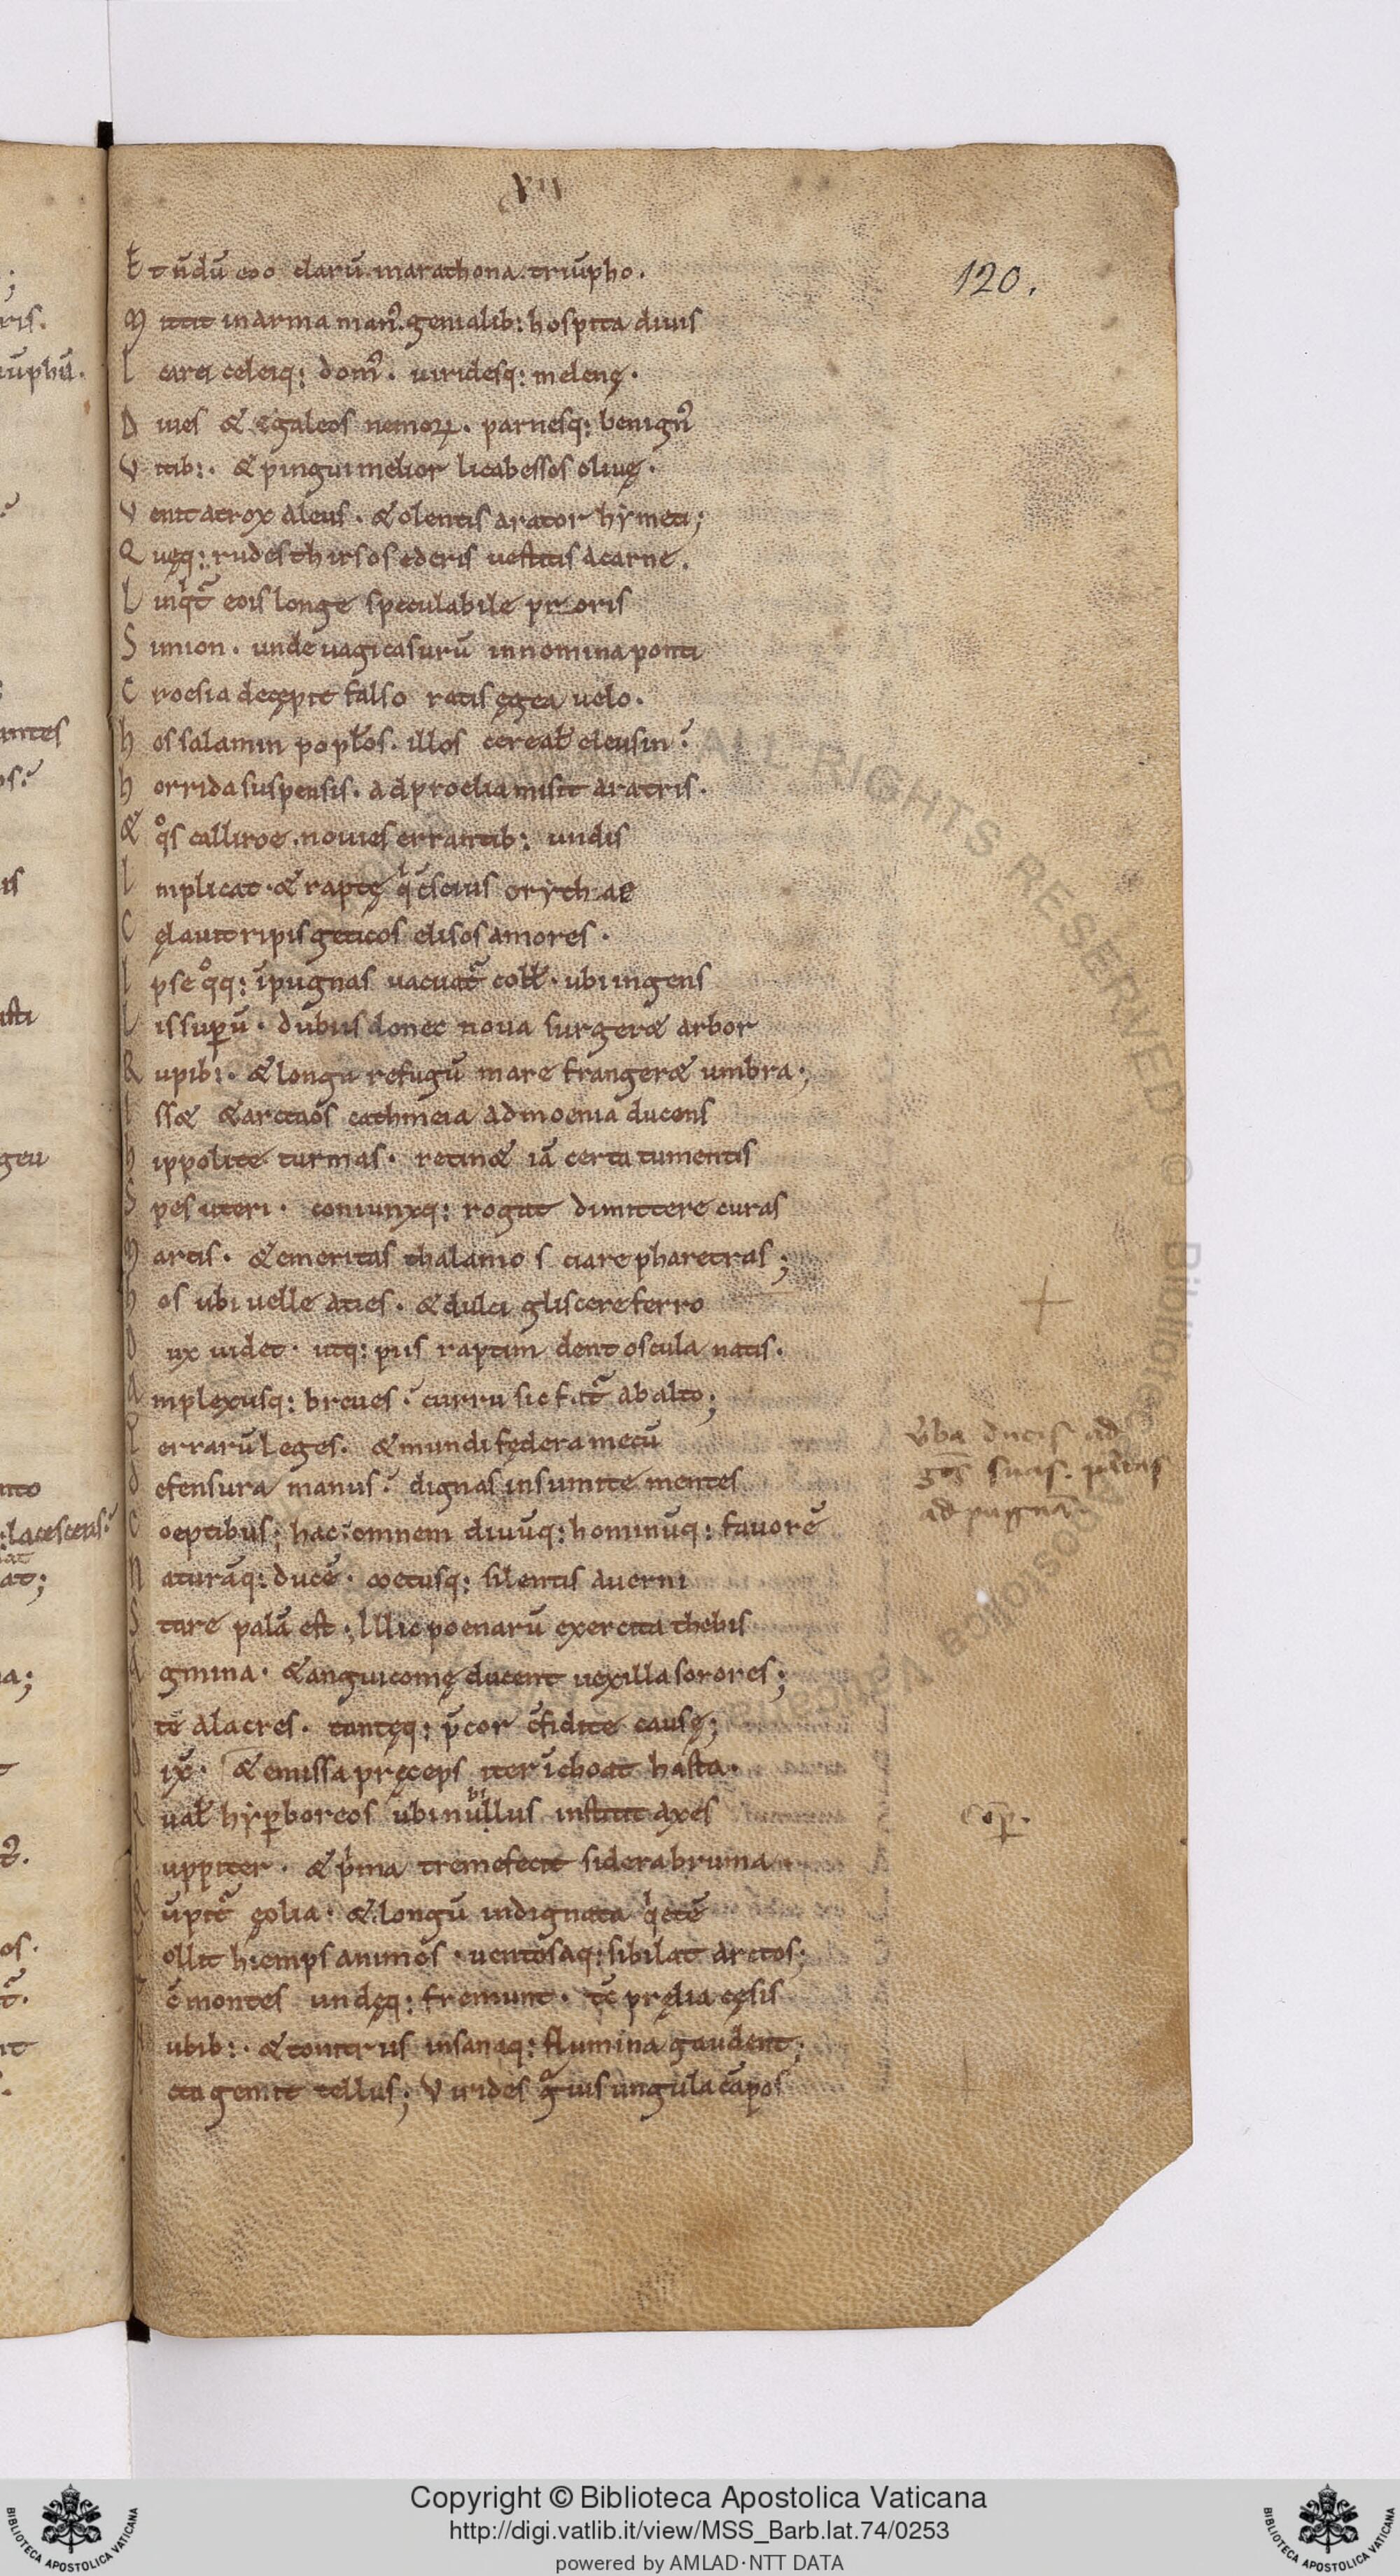 XII
120.
E t ñdū eoo clarū marathona. triūpho.
M ittit in arma man᾿. genialib: hospita diuis
I carii celeiq: dom᾿. uiridesq: melenę.
D iues & ęgaleos nemoꝝ. parnesq: benign᾿
V itib:. & pingui melior licabessos oliuę.
V enit atrox aleus. & olentis arator hẏmeti;
Q uęq: rudes thirsos ederis uestitis acarne.
L inqt̃ eois longe speculabile pr̄ oris
S union. unde uagi casurū in nomina ponti
C roesia decępit falso ratis ęgea uelo.
h os salamin popłos. illos cereał eleusin.
h orrida suspensis. ad proelia misit aratris.
& qͦs calliroe. nouies errantib: undis
I mplicat. & raptę qⁱ c̄scius orẏthae
C ęlauit ripis geticos elisos amores.
I pse qͦq: īpugnas uacuat̃ colł. ubi ingens
L is supū. dubiis donec noua surger& arbor
R upib:. & longa refugū mare franger& umbra;
I ss& & arctaos cathmeia ad moenia ducens
h ippolite turmas. retin& iā certa tumentis
S pes uteri. coniunxq: rogat dimittere curas
M artis. & emeritas thalamo s ciare pharetras;
h os ubi uelle acies. & dulci gliscere ferro
D ux uidet. utq: piis raptim dent oscula natis.
A mplexusq: breues. curru sic fat̃ ab alto;
T errarū leges. & mundi fędera mecū
D efensura manus. dignas insumite mentes
C oeptibus; hac omnem diuūq: hominūq: fauorē
N aturāq: ducē. coetusq: silentis auerni
S tare palā est; Illic poenarū exercita thebis
A gmina. & anguicomę ducent uexilla sorores;
I te alacres. tantęq: p̄cor c̄fidite causę;
D ix̄. & emissa pręceps iter īchoat hasta.
Q uał hẏpboreos ubi nubillus institit axes
I uppiter. & pⁱma tremefecit sidera bruma
R ūpit̃ ęolia. & longū indignata qⁱetē
T ollit hiemps animos. uentosaq: sibilat arctos;
T c̄ montes undęq: fremunt. tc̄ prędia cęsis
N ubib:. & tonitrus insanaq: flumina gaudent;
I cta gemit tellus; Virides gͣuis ungula cāpos
ūba ducis ad
gētes suas. pͣtas
ad pugnā.
Cop̄.